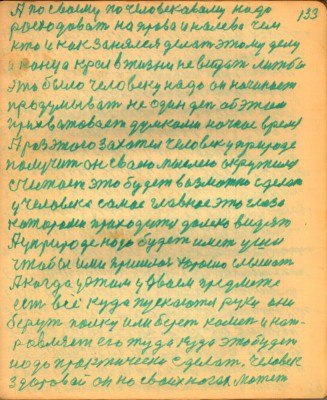 133
А по своему по человекавому надо
расходоват на права и налево чем
кто и как занялся делат этому делу
и конца края в жизни не видат лишбы
это было человеку надо он начинает
продумыват не один ден об этом
прихватовает думками ночное время
А раз этого захотел человек у природе
получит он сваю мыслею окружил
считает это будет возможно сделат
у человека самое главное это глаза
которыми приходится далеко видит
А у природе надо будет имет уши
чтобы ими пришлос хорошо слышат
А когда уженим у двоем предмете
ест всё куда пускаются руки они
берут палку или берет камен и нап-
равляет его туда куда это будет
надо практически сделат. Человек
здоровай он на своих ногах может